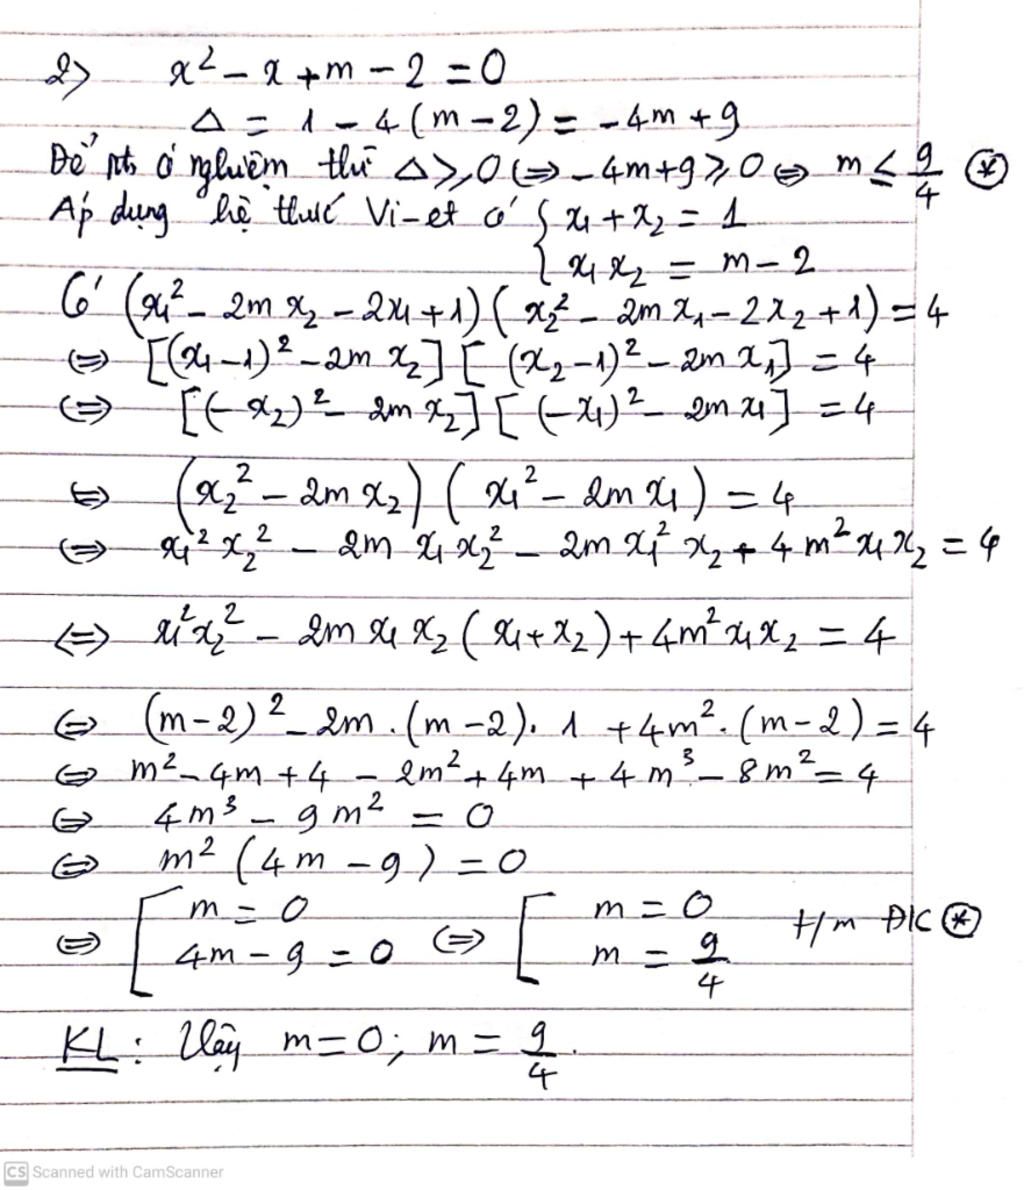 2) x² - x + m - 2 = 0
Δ = 1 - 4(m - 2) = -4m + 9
Để pt có nghiệm thì Δ ≥ 0 ⇔ -4m + 9 ≥ 0 ⇔ m ≤ 9/4 (*)
Áp dụng hệ thức Vi-et có { x₁ + x₂ = 1
x₁x₂ = m - 2
Có (x₁² - 2mx₂ - 2x₁ + 1)(x₂² - 2mx₁ - 2x₂ + 1) = 4
⇔ [(x₁ - 1)² - 2mx₂][(x₂ - 1)² - 2mx₁] = 4
⇔ [(-x₂)² - 2mx₂][(-x₁)² - 2mx₁] = 4
⇔ (x₂² - 2mx₂)(x₁² - 2mx₁) = 4
⇔ x₁²x₂² - 2mx₁x₂² - 2mx₁²x₂ + 4m²x₁x₂ = 4
⇔ x₁²x₂² - 2mx₁x₂(x₁ + x₂) + 4m²x₁x₂ = 4
⇔ (m - 2)² - 2m.(m - 2).1 + 4m².(m - 2) = 4
⇔ m² - 4m + 4 - 2m² + 4m + 4m³ - 8m² = 4
⇔ 4m³ - 9m² = 0
⇔ m²(4m - 9) = 0
⇔ [ m = 0
4m - 9 = 0 ⇔ [ m = 0
m = 9/4 t/m ĐK (*)
KL: Vậy m = 0; m = 9/4.
CS Scanned with CamScanner